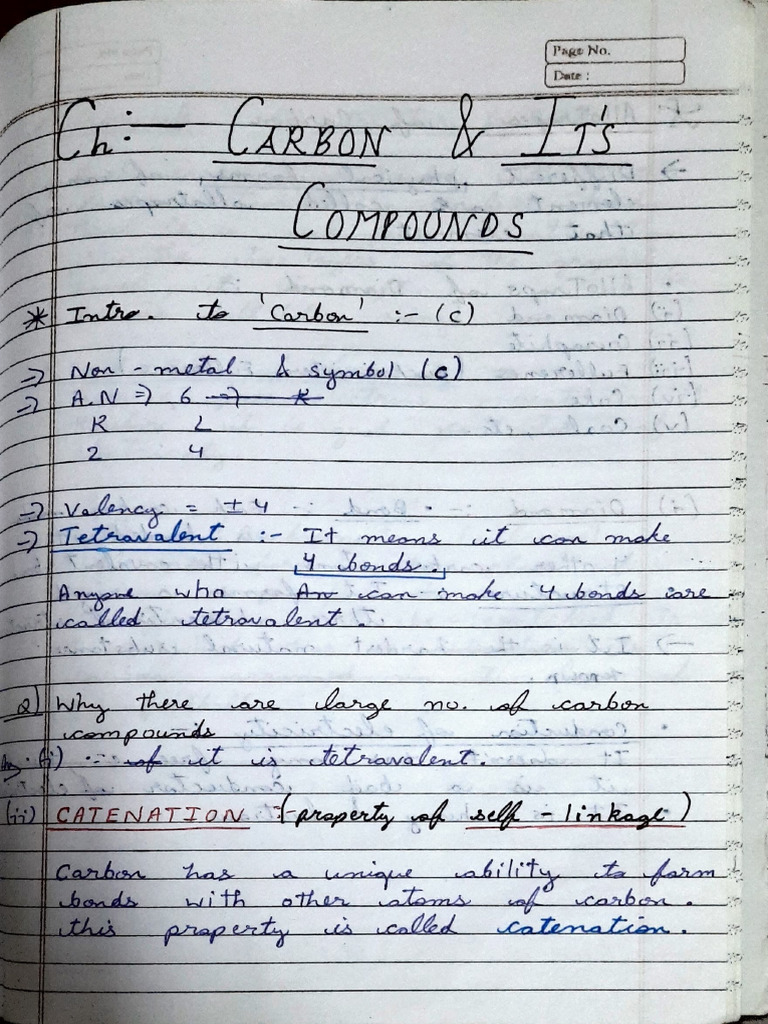 Page No.
Date :
Ch:- CARBON & IT'S
COMPOUNDS
* Intro. to 'Carbon' :- (c)
=> Non-metal & symbol (c)
=> A.N => 6 => K
K L
2 4
=> Valency = ±4
=> Tetravalent :- It means it can make
4 bonds.
Anyone who An can make 4 bonds are
called tetravalent.
Q) Why there are large no. of carbon
compounds
Ans. (i) ∵ of it is tetravalent.
(ii) CATENATION :- (property of self-linkage)
Carbon has a unique ability to form
bonds with other atoms of carbon.
this property is called catenation.